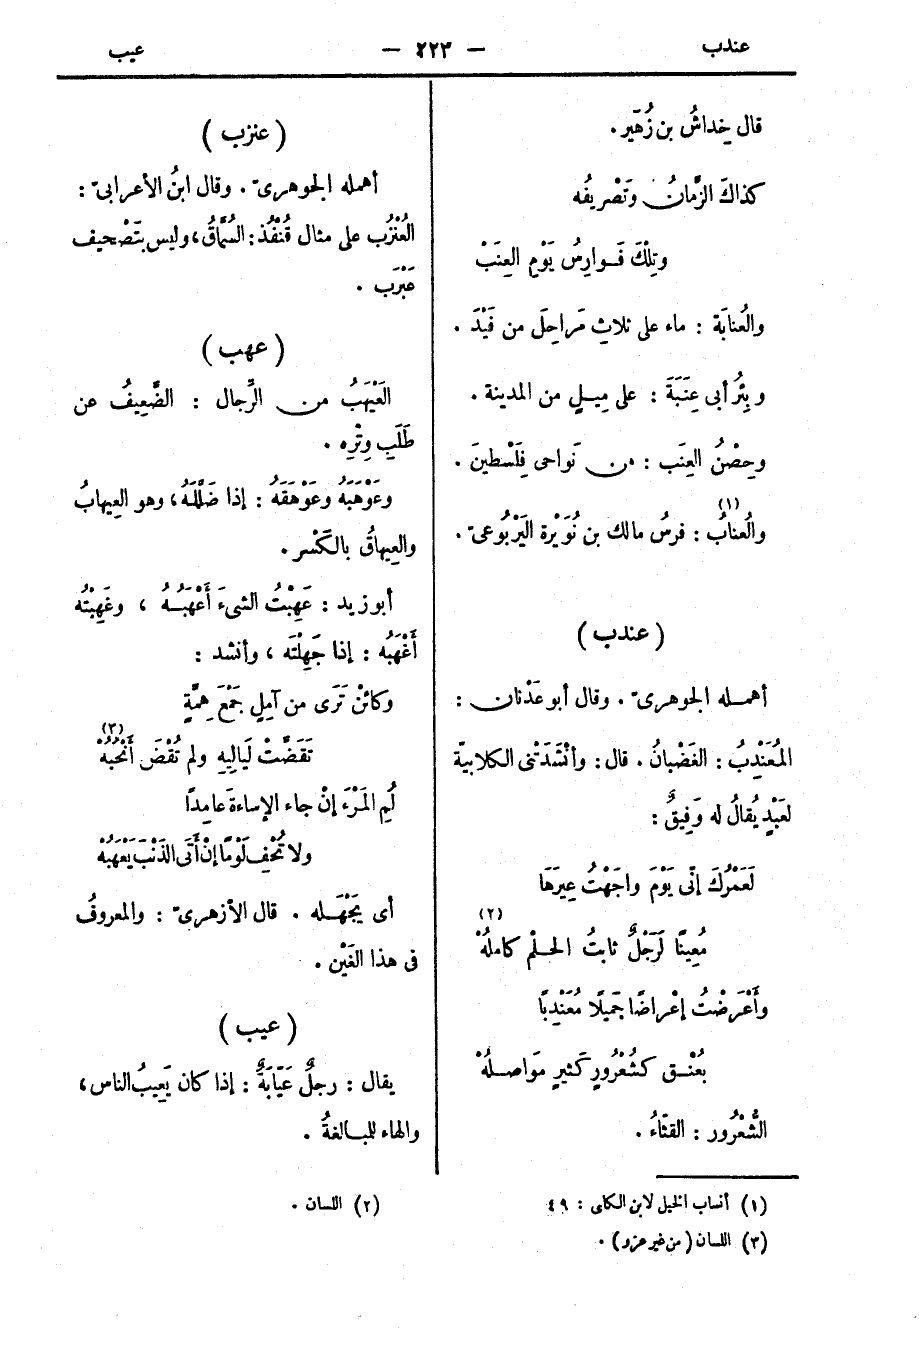 عندب — ٢٢٣ — عيب
قال خِداشُ بن زُهَير.
كذاكَ الزَّمانُ وتَصْرِيفُه
وتِلْكَ فَوارِسُ يَوْمِ العِنَبْ
والعُنابَة : ماء على ثلاثِ مَراحِلَ من فَيْدَ .
وبِئرُ أبى عِنَبَةَ : على مِيلٍ من المدينة .
وحِصْنُ العِنَب : من نَواحى فِلَسْطينَ .
والعُنابُ (١) : فرسُ مالك بن نُوَيْرة اليَرْبُوعىّ .
( عندب )
أهمله الجوهرىّ . وقال أبو عَدْنان :
المُعَنْدِبُ : الغَضْبانُ . قال : وأنْشَدَتْنى الكلابيّة
لعَبْدٍ يُقالُ له وَفِيقٌ :
لَعَمْرُكَ إنّى يَوْمَ واجَهْتُ عِيرَها
مُعِينًا لَرَجْلٌ ثابتُ الحلْم كاملُهْ (٢)
وأَعْرَضْتُ إعْراضًا جَمِيلًا مُعَنْدِبًا
بعُنْقٍ كشُعْرُورٍ كَثيرٍ مَواصلُهْ
الشُّعْرُور : القثّاءُ .
( عنزب )
أهمله الجوهرىّ . وقال ابنُ الأعرابىّ :
العُنْزُب على مثال قُنْفُذ : السُمَّاقُ ، وليس بتَصْحيف
عَبْرَب .
( عهب )
العَيْهَبُ من الرِّجال : الضَّعِيفُ عن
طَلَبِ وِتْرِه .
وعَوْهَبَهُ وعَوْهَقَهُ : إذا ضَلَّلَهُ ، وهو العِيهابُ
والعِيهاقُ بالكَسْر .
أبو زيد : عَهِبْتُ الشىءَ أَعْهَبُهُ ، وغَهِبْتُه
أَغْهَبُه : إذا جَهِلْتَه ، وأنشد :
وكائنْ تَرَى من آمِلٍ جَمْعَ هِمَّةٍ
تَقَضَّتْ لَيالِيهِ ولم تُقْضَ أَنْحُبُهْ (٣)
لُمِ المَرْءَ إنْ جاء الإساءةَ عَامِدًا
ولا تُحْفِ لَوْمًا إنْ أَتَى الذَنْبَ يَعْهَبُهْ
أى يَجْهَله . قال الأزهرىّ : والمعروفُ
فى هذا الغَيْن .
( عيب )
يقال : رجلٌ عَيّابَةٌ : إذا كان يَعِيبُ الناس ،
والهاء للمبالغةُ .
(١) أنساب الخيل لابن الكلبى : ٤٩
(٢) اللسان .
(٣) اللسان (من غير عزو) .